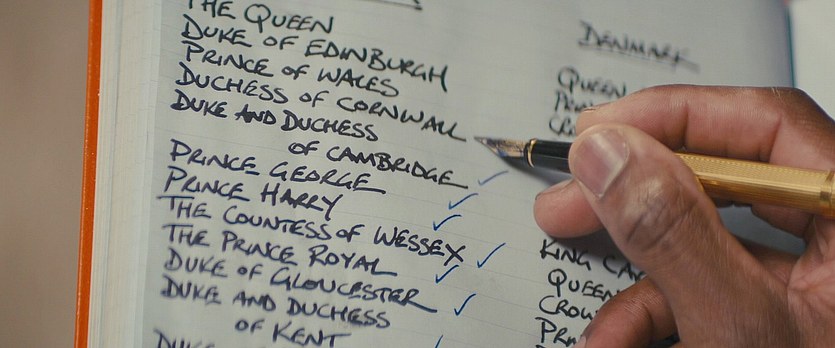 THE QUEEN
DUKE OF EDINBURGH
PRINCE OF WALES
DUCHESS OF CORNWALL
DUKE AND DUCHESS
OF CAMBRIDGE
PRINCE GEORGE
PRINCE HARRY
THE COUNTESS OF WESSEX
THE PRINCE ROYAL
DUKE OF GLOUCESTER
DUKE AND DUCHESS
OF KENT
DUKE
DENMARK
QUEEN
KING
QUEEN